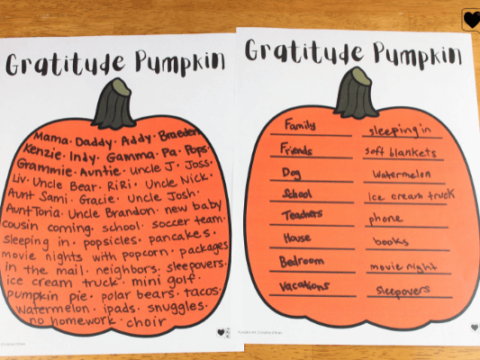 Gratitude Pumpkin
Mama · Daddy · Addy · Braeden
Kenzie · Indy · Gamma · Pa · Pops ·
Grammie · Auntie · Uncle J · Joss ·
Liv · Uncle Bear · RiRi · Uncle Nick ·
Aunt Sami · Gracie · Uncle Josh ·
Aunt Toria · Uncle Brandon · new baby
cousin coming · school · soccer team ·
sleeping in · popsicles · pancakes ·
movie nights with popcorn · packages
in the mail · neighbors · sleepovers ·
ice cream truck · mini golf ·
pumpkin pie · polar bears · tacos ·
watermelon · ipads · snuggles ·
no homework · choir
Gratitude Pumpkin
Family
sleeping in
Friends
soft blankets
Dog
Watermelon
School
ice cream truck
Teachers
phone
House
books
Bedroom
movie night
Vacations
sleepovers